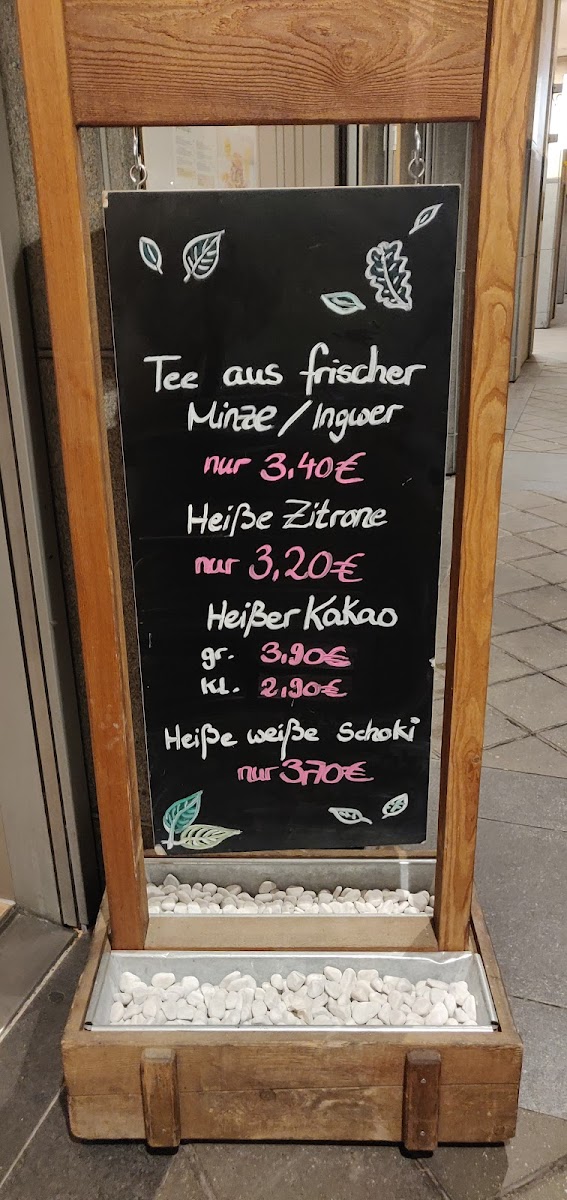 Tee aus frischer
Minze / Ingwer
nur 3,40€
Heiße Zitrone
nur 3,20€
Heißer Kakao
gr. 3,90€
kl. 2,90€
Heiße weiße Schoki
nur 3,70€